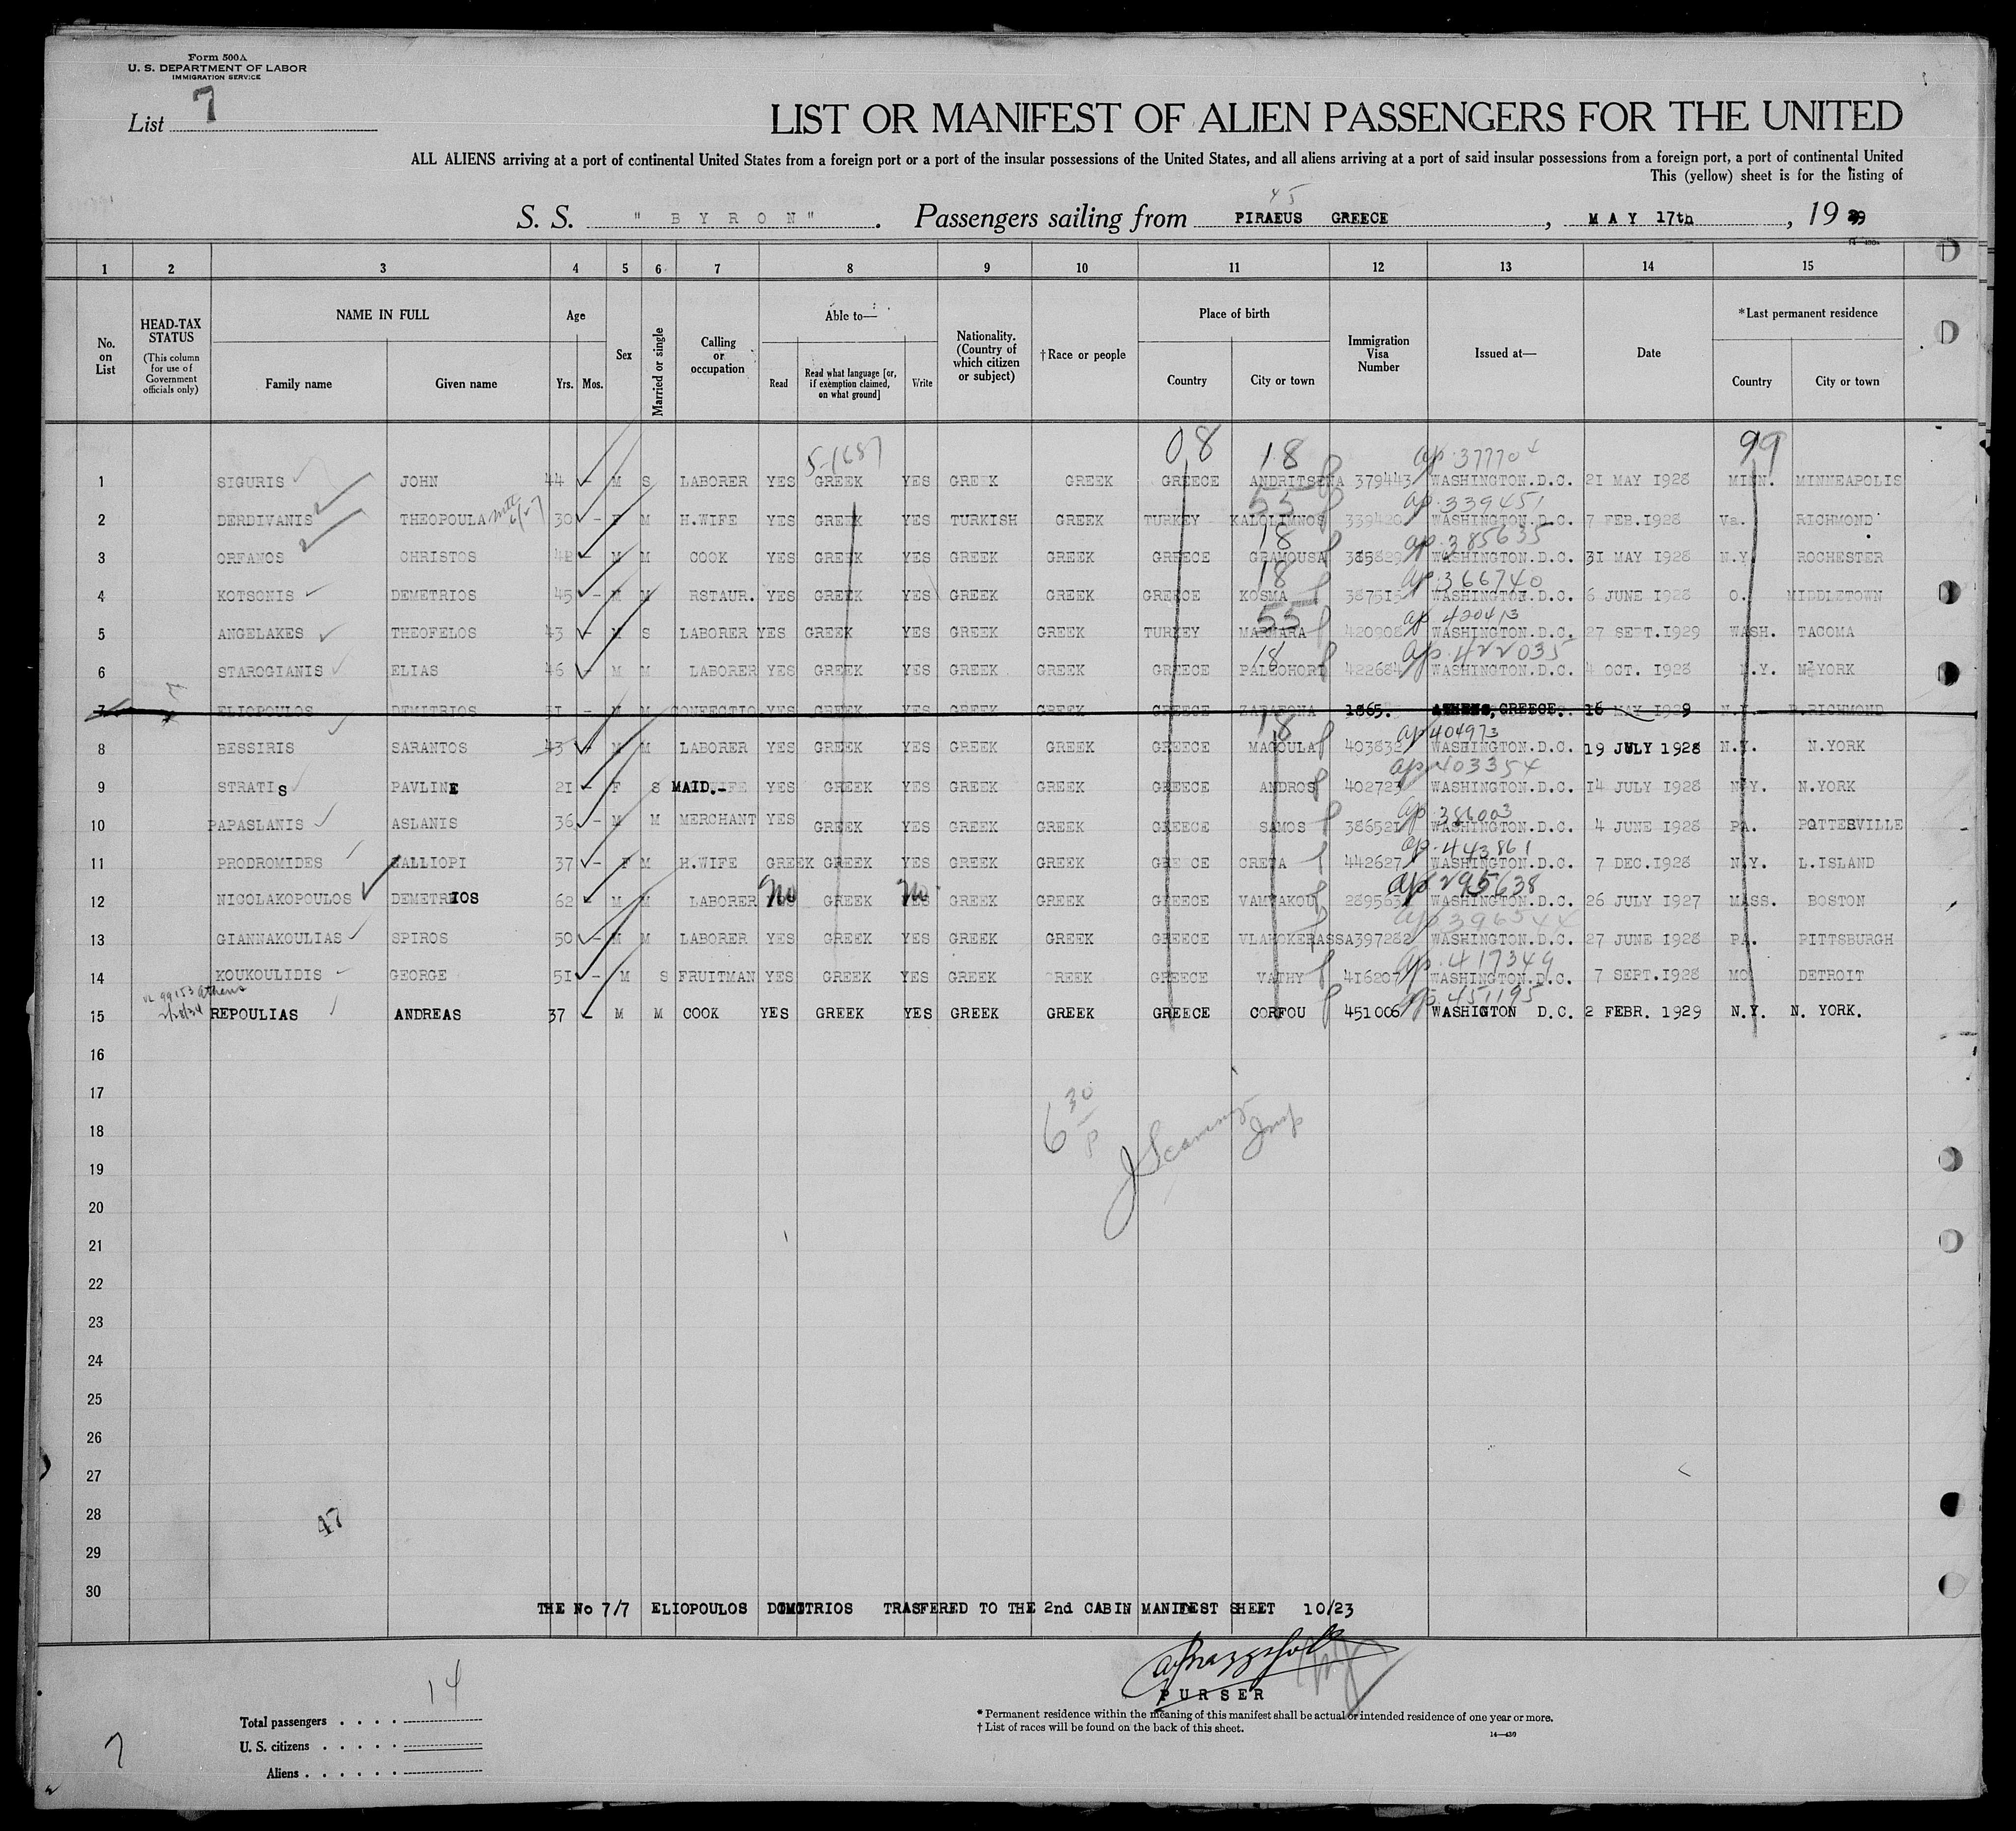 Form 500A
U. S. DEPARTMENT OF LABOR
IMMIGRATION SERVICE
List 7
LIST OR MANIFEST OF ALIEN PASSENGERS FOR THE UNITED
ALL ALIENS arriving at a port of continental United States from a foreign port or a port of the insular possessions of the United States, and all aliens arriving at a port of said insular possessions from a foreign port, a port of continental United
This (yellow) sheet is for the listing of
45
S. S. "BYRON". Passengers sailing from PIRAEUS GREECE, MAY 17th, 1929
1 2 3 4 5 6 7 8 9 10 11 12 13 14 15
No. on List
HEAD-TAX STATUS (This column for use of Government officials only)
NAME IN FULL
Family name Given name
Age
Yrs. Mos.
Sex
Married or single
Calling or occupation
Able to—
Read Read what language [or, if exemption claimed, on what ground] Write
Nationality. (Country of which citizen or subject)
†Race or people
Place of birth
Country City or town
Immigration Visa Number
Issued at—
Date
*Last permanent residence
Country City or town
5-1687 08 18 ap. 377704 99
1 SIGURIS JOHN 44 - M S LABORER YES GREEK YES GREEK GREEK GREECE ANDRITSENA 379443 WASHINGTON.D.C. 21 MAY 1928 MINN. MINNEAPOLIS
55 ap. 339451
2 DERDIVANIS THEOPOULA 30 - F M H.WIFE YES GREEK YES TURKISH GREEK TURKEY KALOLIMNOS 339420 WASHINGTON.D.C. 7 FEB.1928 Va. RICHMOND
18 ap. 385635
3 ORFANOS CHRISTOS 42 - M M COOK YES GREEK YES GREEK GREEK GREECE GRAMOUSA 385829 WASHINGTON.D.C. 31 MAY 1928 N.Y. ROCHESTER
18 ap. 366740
4 KOTSONIS DEMETRIOS 45 - M M RSTAUR. YES GREEK YES GREEK GREEK GREECE KOSMA 387515 WASHINGTON.D.C. 6 JUNE 1928 O. MIDDLETOWN
55 ap 420413
5 ANGELAKES THEOFELOS 43 - M S LABORER YES GREEK YES GREEK GREEK TURKEY MARMARA 420908 WASHINGTON.D.C. 27 SEPT.1929 WASH. TACOMA
18 ap. 422035
6 STAROGIANIS ELIAS 46 - M M LABORER YES GREEK YES GREEK GREEK GREECE PALEOHORI 422684 WASHINGTON.D.C. 4 OCT. 1928 N.Y. YORK
7 ELIOPOULOS DEMITRIOS 31 - M M CONFECTIO. YES GREEK YES GREEK GREEK GREECE ZARAFONA 1865. ATHENS, GREECE. 16 MAY 1929 N.Y. RICHMOND
18 ap 404973
8 BESSIRIS SARANTOS 43 - M M LABORER YES GREEK YES GREEK GREEK GREECE MAGOULA 403832 WASHINGTON.D.C. 19 JULY 1928 N.Y. N.YORK
ap. 403354
9 STRATIS PAVLINE 21 - F S MAID.- YES GREEK YES GREEK GREEK GREECE ANDROS 402723 WASHINGTON.D.C. 14 JULY 1928 N.Y. N.YORK
ap 386003
10 PAPASLANIS ASLANIS 36 - M M MERCHANT YES GREEK YES GREEK GREEK GREECE SAMOS 386521 WASHINGTON.D.C. 4 JUNE 1928 PA. POTTESVILLE
ap. 443861
11 PRODROMIDES KALLIOPI 37 - F M H.WIFE GREEK GREEK YES GREEK GREEK GREECE CRETA 442627 WASHINGTON.D.C. 7 DEC.1928 N.Y. L.ISLAND
ap 295638
12 NICOLAKOPOULOS DEMETRIOS 62 M M LABORER No GREEK No GREEK GREEK GREECE VAMVAKOU 289563 WASHINGTON.D.C. 26 JULY 1927 MASS. BOSTON
ap 396544
13 GIANNAKOULIAS SPIROS 50 - M M LABORER YES GREEK YES GREEK GREEK GREECE VLAHOKERASSA 397282 WASHINGTON.D.C. 27 JUNE 1928 PA. PITTSBURGH
ap. 417349
14 KOUKOULIDIS GEORGE 51 - M S FRUITMAN YES GREEK YES GREEK GREEK GREECE VATHY 416207 WASHINGTON.D.C. 7 SEPT.1928 MO DETROIT
VL 99153 Athens
2/28/34
ap. 451195
15 REPOULIAS ANDREAS 37 - M M COOK YES GREEK YES GREEK GREEK GREECE CORFOU 451006 WASHIGTON D.C. 2 FEBR. 1929 N.Y. N. YORK.
16
17
18
19
20
21
22
23
24
25
26
27
28
29
30
6 30 P
47
THE No 7/7 ELIOPOULOS DIMITRIOS TRASFERED TO THE 2nd CABIN MANIFEST SHEET 10/23
PURSER
14
Total passengers
U. S. citizens
Aliens
* Permanent residence within the meaning of this manifest shall be actual or intended residence of one year or more.
† List of races will be found on the back of this sheet.
14—430
7